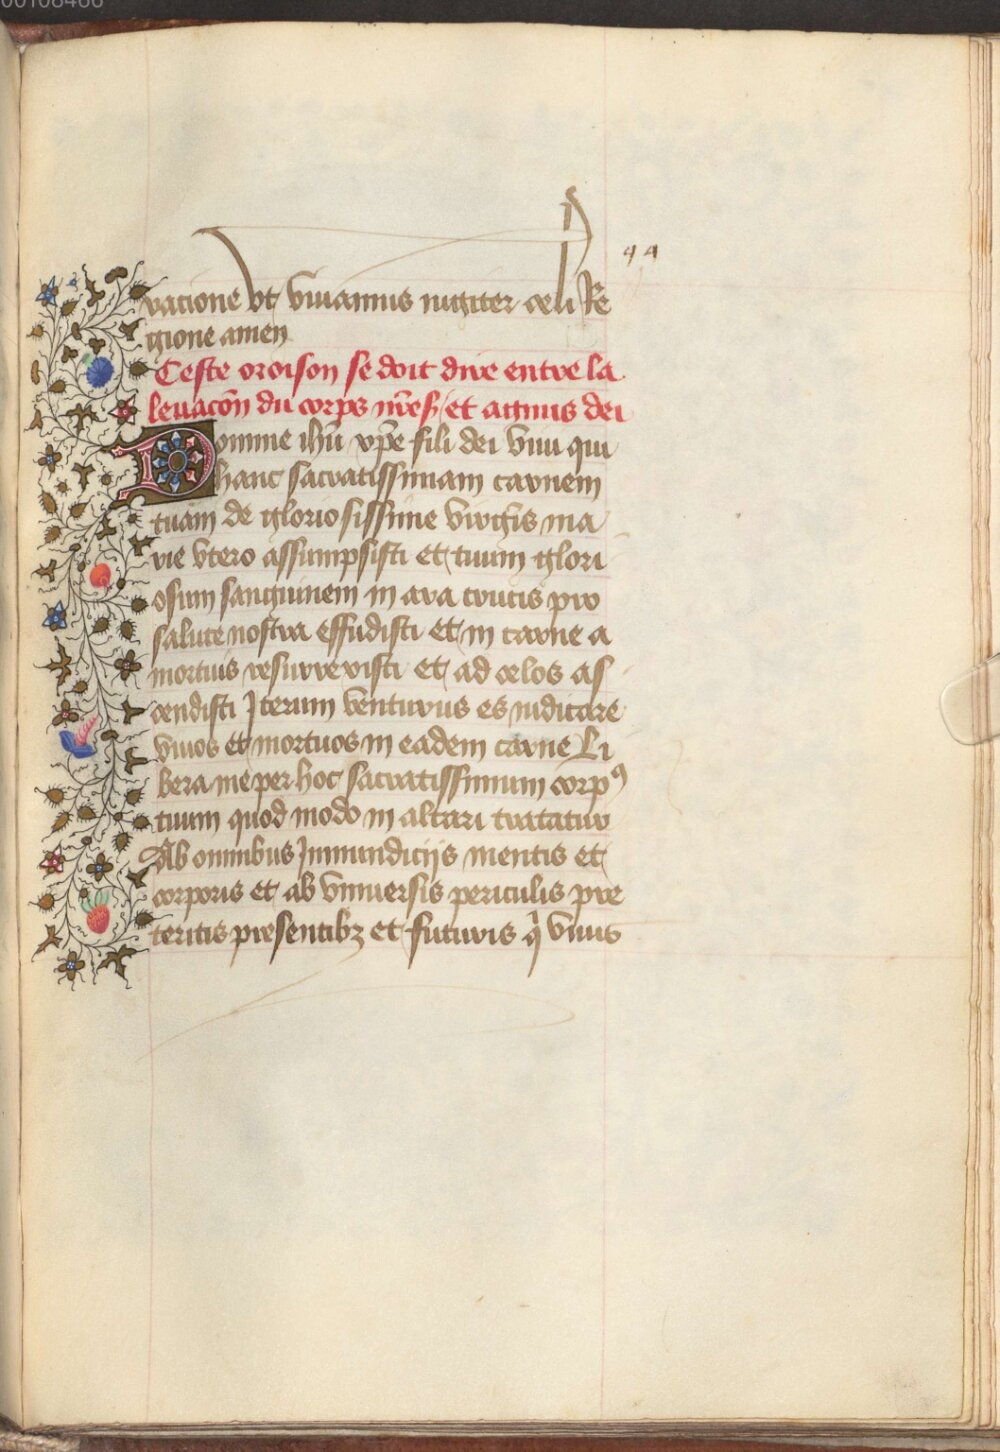 00108466
94
vacione vt viuamus iugiter celi Re
gione amen
Ceste oroison se doit dire entre la
leuacōn du corps nr̄es̃ et agnus dei
Domine ihū xp̄e fili dei viui qui
hanc sacratissimam carnem
tuam de gloriosissime virgīs ma
rie vtero assumpsisti et tuum glori
osum sanguinem in ara crucis pro
salute nostra effudisti et in carne a
mortuis resurrexisti et ad celos as
cendisti Iterum venturus es iudicare
viuos et mortuos in eadem carne Li
bera me per hoc sacratissimum corpꝰ
tuum quod modo in altari tractatur
Ab omnibus Inmundicijs mentis et
corporis et ab vniuersis periculis pre
teritis presentibꝫ et futuris q̄ viuis